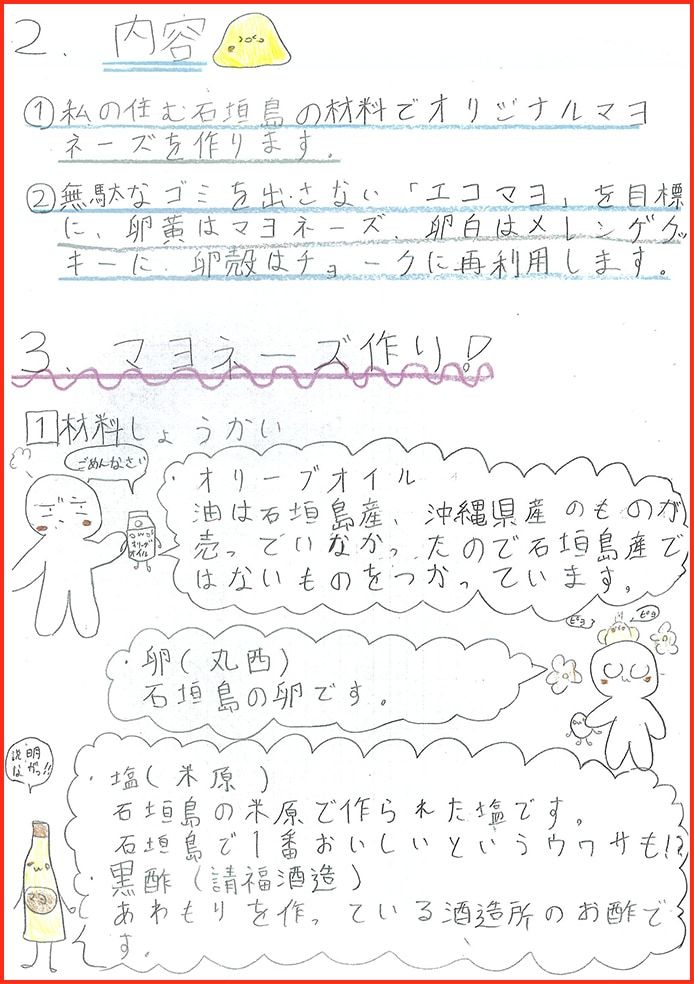 2. 内容
①私の住む石垣島の材料でオリジナルマヨ
ネーズを作ります。
②無駄なゴミを出さない「エコマヨ」を目標
に、卵黄はマヨネーズ、卵白はメレンゲクッ
キーに、卵殻はチョークに再利用します。
3. マヨネーズ作り!
1 材料しょうかい
ごめんなさい
オリーブオイル
・オリーブオイル
油は石垣島産、沖縄県産のものが
売っていなかったので石垣島産で
はないものをつかっています。
ピヨ
ピヨ
・卵(丸西)
石垣島の卵です。
説明
ながっ!!
・塩(米原)
石垣島の米原で作られた塩です。
石垣島で1番おいしいというウワサも!?
・黒酢(請福酒造)
あわもりを作っている酒造所のお酢で
す。